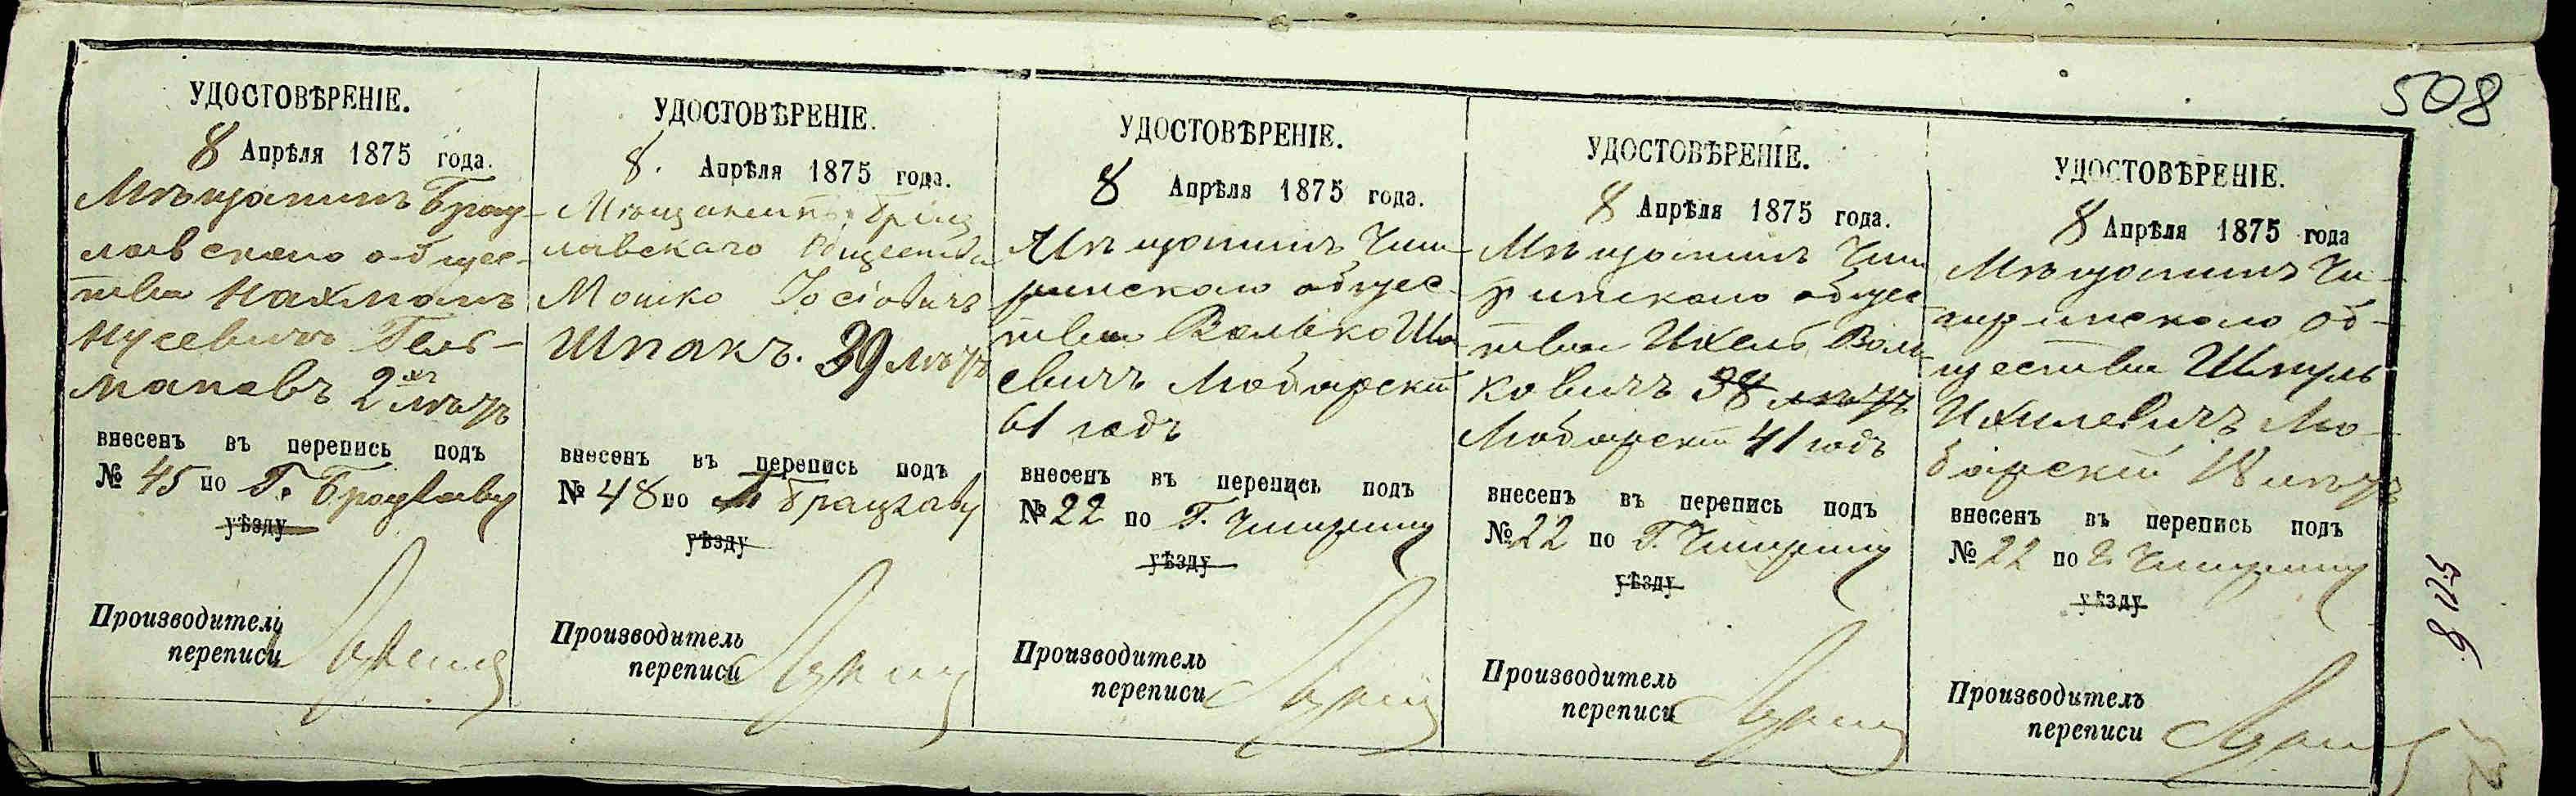 508
УДОСТОВѢРЕНІЕ.
8 Апрѣля 1875 года.
Мѣщанинъ Брац-
лавскаго общес-
тва Нахманъ
Нусевичъ Гель-
мановъ 2хъ лѣтъ
внесенъ въ перепись подъ
№ 45 по Г. Брацлаву
уѣзду
Производитель
переписи
УДОСТОВѢРЕНІЕ.
8. Апрѣля 1875 года.
Мѣщанинъ Брац
лавскаго Общества
Мошко Іосіовичъ
Шпакъ. 39 лѣтъ
внесенъ въ перепись подъ
№ 48 по Брацлаву
уѣзду
Производитель
переписи
УДОСТОВѢРЕНІЕ.
8 Апрѣля 1875 года.
Мѣщанинъ Чиги
ринскаго общес
тва Волько
евичъ Любарскій
61 годъ
внесенъ въ перепись подъ
№ 22 по Г. Чигирину
уѣзду
Производитель
переписи
УДОСТОВѢРЕНІЕ.
8 Апрѣля 1875 года.
Мѣщанинъ Чиги
ринскаго общес
тва Ихель Воль
ковичъ 38 лѣтъ
Любарскій 41 годъ
внесенъ въ перепись подъ
№ 22 по Г. Чигирину
уѣзду
Производитель
переписи
УДОСТОВѢРЕНІЕ.
8 Апрѣля 1875 года
Мѣщанинъ Чи-
гиринскаго об-
щества Шмуль
Ихилевичъ Лю-
барскій 18 лѣтъ
внесенъ въ перепись подъ
№ 22 по г. Чигирину
уѣзду
Производитель
переписи